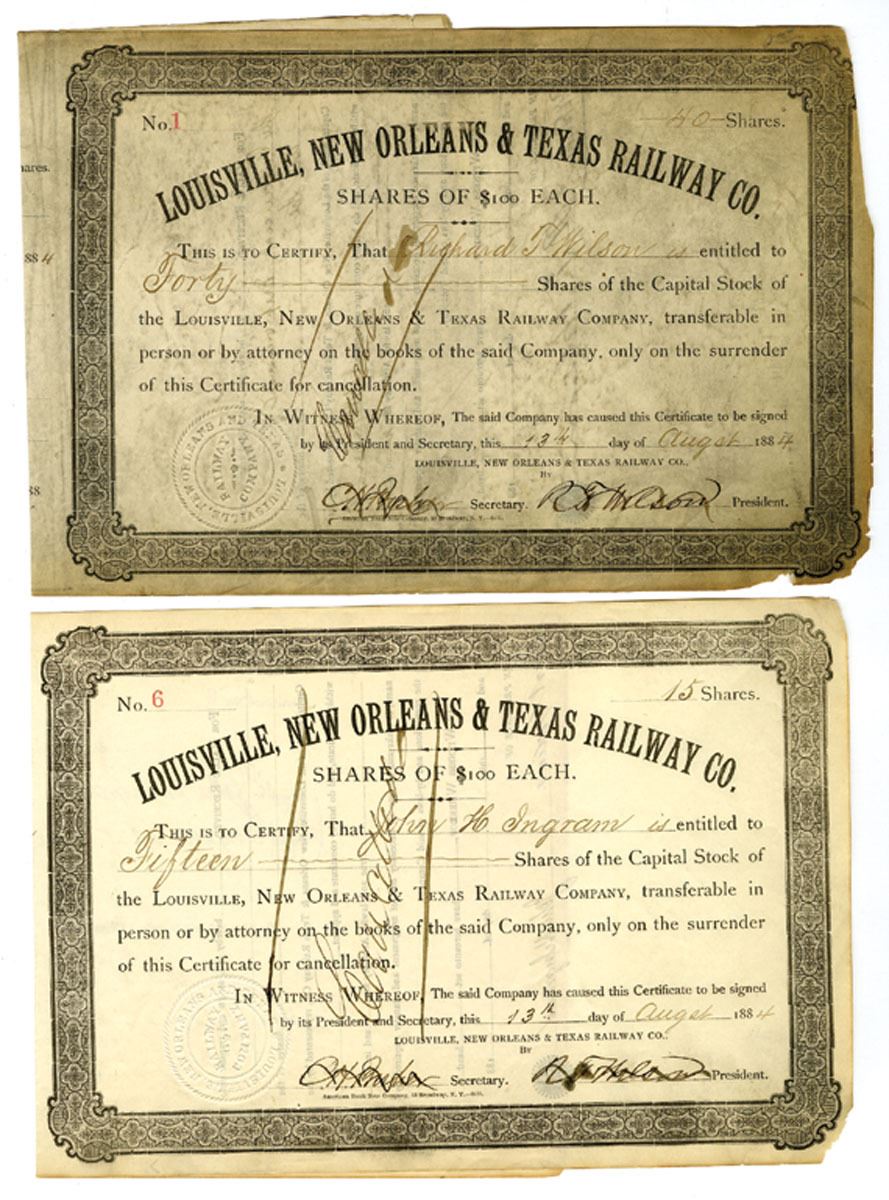 No. 1
40 Shares.
LOUISVILLE, NEW ORLEANS & TEXAS RAILWAY CO.
SHARES OF $100 EACH.
THIS IS TO CERTIFY, That Richard T Wilson is entitled to
Forty Shares of the Capital Stock of
the LOUISVILLE, NEW ORLEANS & TEXAS RAILWAY COMPANY, transferable in
person or by attorney on the books of the said Company, only on the surrender
of this Certificate for cancellation.
Cancelled
IN WITNESS WHEREOF, The said Company has caused this Certificate to be signed
by its President and Secretary, this 13th day of Augst 1884
LOUISVILLE, NEW ORLEANS & TEXAS RAILWAY CO.,
BY
Secretary. R T Wilson President.
American Bank Note Company, N. Y.
LOUISVILLE, NEW ORLEANS AND TEXAS
RAILWAY COMPANY
ares.
884
88
No. 6
15 Shares.
LOUISVILLE, NEW ORLEANS & TEXAS RAILWAY CO.
SHARES OF $100 EACH.
THIS IS TO CERTIFY, That John H Ingram is entitled to
Fifteen Shares of the Capital Stock of
the LOUISVILLE, NEW ORLEANS & TEXAS RAILWAY COMPANY, transferable in
person or by attorney on the books of the said Company, only on the surrender
of this Certificate for cancellation.
Cancelled
IN WITNESS WHEREOF, The said Company has caused this Certificate to be signed
by its President and Secretary, this 13th day of Augst 1884
LOUISVILLE, NEW ORLEANS & TEXAS RAILWAY CO.,
BY
Secretary. R T Wilson President.
American Bank Note Company, Broadway, N. Y.
LOUISVILLE, NEW ORLEANS AND TEXAS
RAILWAY COMPANY